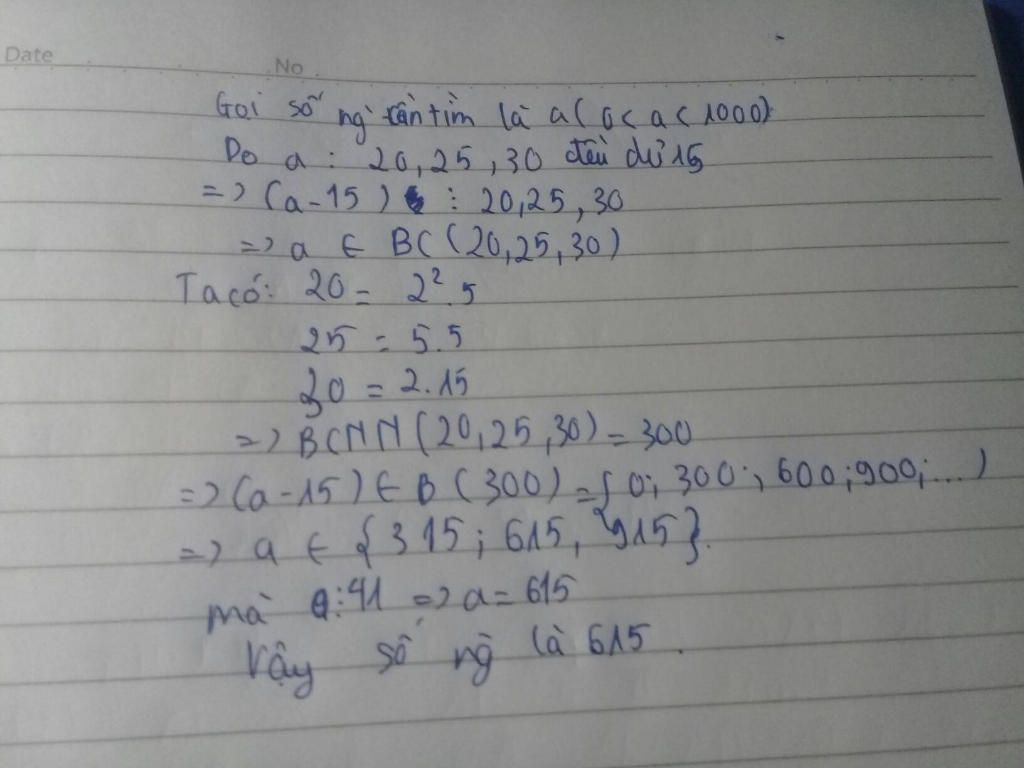 Date
No
Gọi số ng cần tìm là a (0 < a < 1000)
Do a : 20, 25, 30 đều dư 15
=> (a - 15) ⋮ 20, 25, 30
=> a ∈ BC (20, 25, 30)
Ta có: 20 = 2². 5
25 = 5.5
30 = 2.15
=> BCNN (20, 25, 30) = 300
=> (a - 15) ∈ B (300) = { 0; 300; 600; 900; ...)
=> a ∈ { 315; 615, 915}.
mà a ⋮ 41 => a = 615
Vậy số ng là 615.